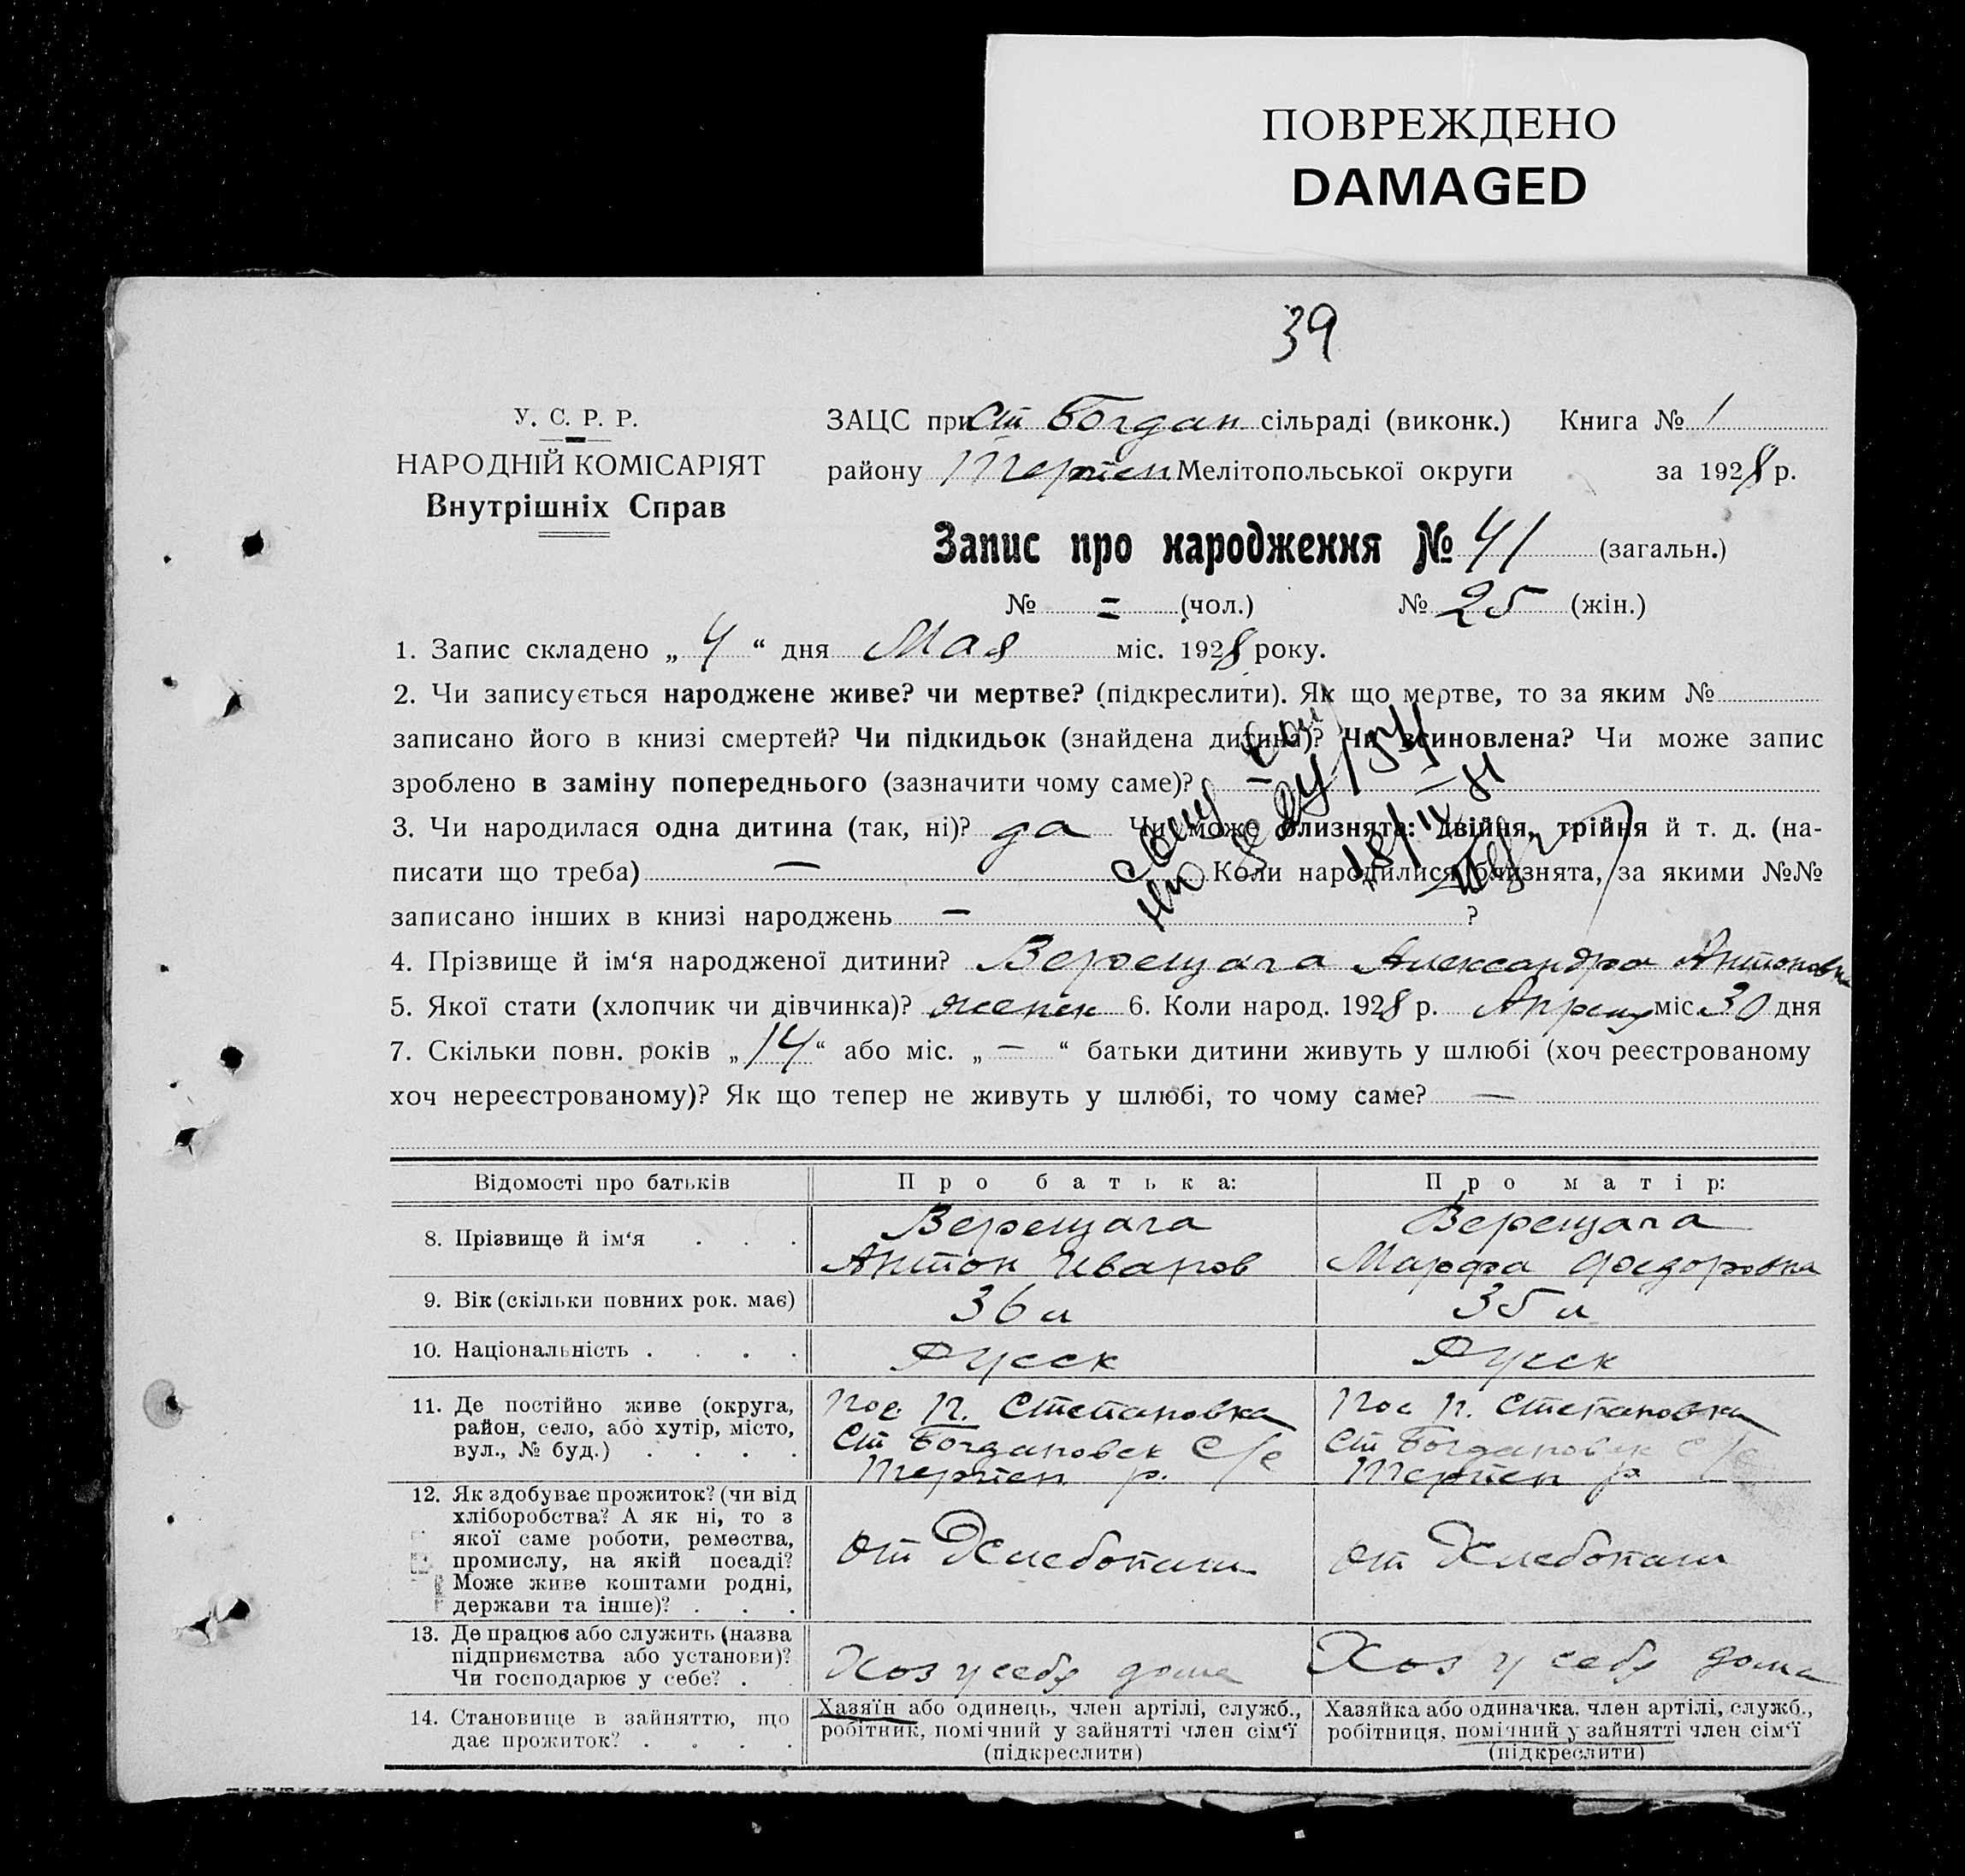 ПОВРЕЖДЕНО
DAMAGED
39
У. С. Р. Р.
НАРОДНІЙ КОМІСАРІЯТ
Внутрішніх Справ
ЗАЦС при Ст Богдан сільраді (виконк.) Книга № 1
району Терпен Мелітопольської округи за 1928 р.
Запис про народження № 41 (загальн.)
№ = (чол.) № 25 (жін.)
1. Запис складено „ 4 “ дня Мая міс. 1928 року.
2. Чи записується народжене живе? чи мертве? (підкреслити). Як що мертве, то за яким №
записано його в книзі смертей? Чи підкидьок (знайдена дитина)? Чи всиновлена? Чи може запис
зроблено в заміну попереднього (зазначити чому саме)? —
3. Чи народилася одна дитина (так, ні)? да Чи може близнята: двійня, трійня й т. д. (на-
писати що треба) — Коли народилися близнята, за якими №№
записано інших в книзі народжень — ?
4. Прізвище й ім‘я народженої дитини? Верещага Александра Антоновн
5. Якої стати (хлопчик чи дівчинка)? женск 6. Коли народ. 1928 р. Апрель міс. 30 дня
7. Скільки повн. років „ 14 “ або міс. „ — “ батьки дитини живуть у шлюбі (хоч реєстрованому
хоч нереєстрованому)? Як що тепер не живуть у шлюбі, то чому саме? —
Відомості про батьків Про батька: Про матір:
8. Прізвище й ім‘я Верещага Антон Иванов Верещага Марфа Федоровна
9. Вік (скільки повних рок. має) 36 л 35 л
10. Національність Русск Русск
11. Де постійно живе (округа,
район, село, або хутір, місто,
вул., № буд.)
Пос. Н. Степановка
Ст Богдановск С/с
Терпен р.
Пос Н. Степановка
Ст Богдановск С/с
Терпен р
12. Як здобуває прожиток? (чи від
хліборобства? А як ні, то з
якої саме роботи, ремества,
промислу, на якій посаді?
Може живе коштами родні,
держави та інше)?
от Хлебопаш
от Хлебопаш
13. Де працює або служить (назва
підприємства або установи)?
Чи господарює у себе?
Хоз у себя дома
Хоз у себя дома
14. Становище в зайняттю, що
дає прожиток?
Хазяїн або одинець, член артілі, служб.,
робітник, помічний у зайнятті член сім‘ї
(підкреслити)
Хазяйка або одиначка, член артілі, служб.,
робітниця, помічний у зайнятті член сім‘ї
(підкреслити)